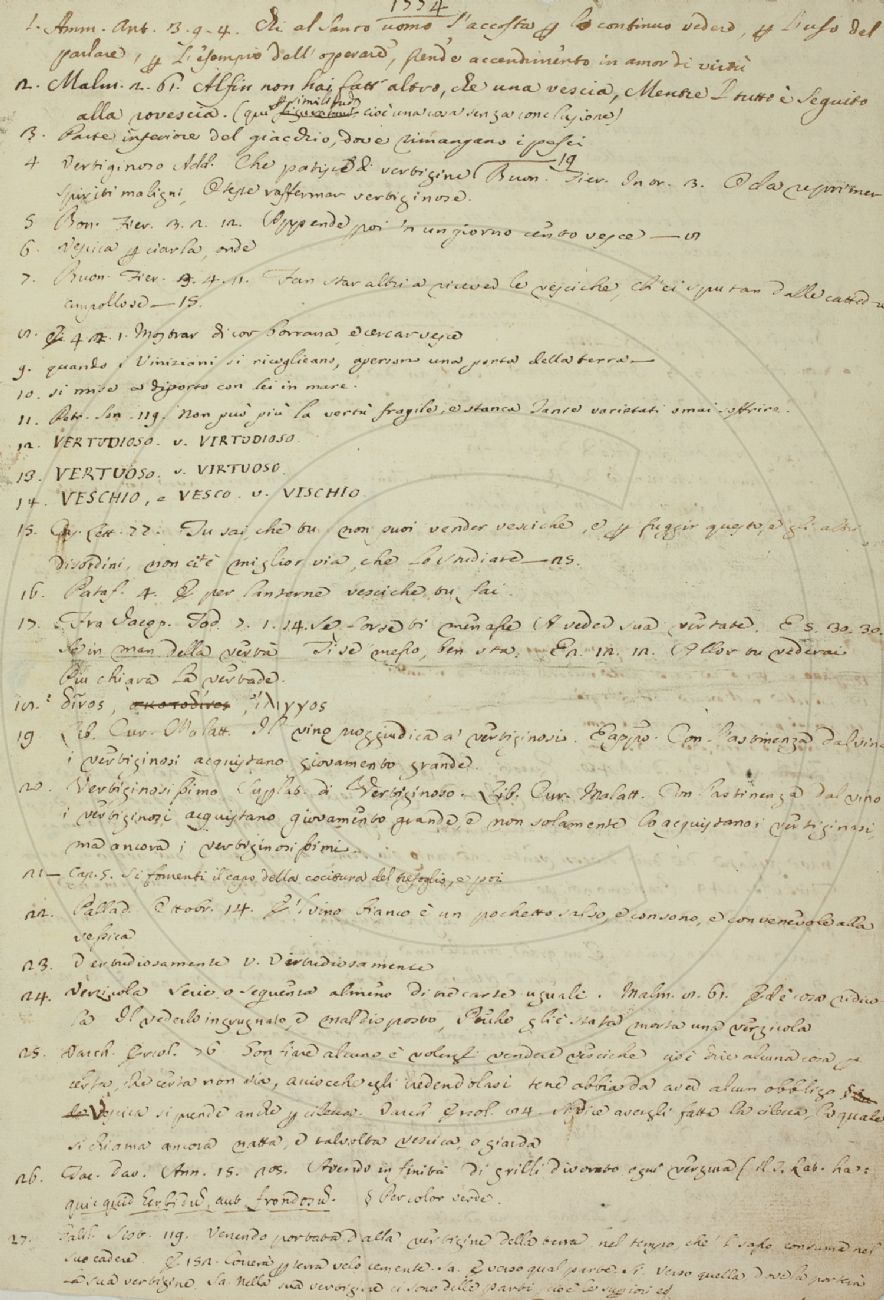 1334
1. Amm. Ant. 13. 9. 4. Chi al santo uomo s'accosta p lo continuo vedere, p l'uso del
parlare, p l'esempio dell'operare, prende accendimento in amor di virtù
2. Malm. 2. 61. Alfin non hai fatt' altro, che una vescia, Mentre l tutto è seguito
alla rovescia. (qui p similitud. cioè una cosa senza conclusione)
3. Parte inferiore del giacchio, dove rimangano i pesci
4 Vertiginoso Add. Che patisce di vertigine 19 Buon. Fier. Intr. 3. O da reprimer
spiriti maligni, O teste raffermar vertiginose.
5 Bon. Fier. 3. 2. 12. Appende poi 'n un giorno cento vesce
6. Vescica p ciarla, onde
7. Buon. Fier. 4. 11. Fan star altri a ricever le vesciche, ch'ei sputan dalle catted
ampollose — 15.
E 4 1. Mostrar di cor borrana, e cercar vesce
9. quando i Viniziani si ricoglieano, apersono una porta della terra —
10. si mise a diporto con lei in mare.
11. Petr. Son. 119. Non può più la vertù fragile, e stanca Tante varietati omai soffrire.
12. VERTUDIOSO. v. VIRTUDIOSO.
13. VERTUOSO. v. VIRTUOSO.
14. VESCHIO, e VESCO. v. VISCHIO
15. Car. Lett. 22. Tu sai, che tu non puoi vender vesciche, e p fuggir questo, e gli altri
disordini, non ci è miglior via, che lo studiare — 25.
16. Pataf. 4. E per lanterne vesciche tu fai.
17. Fra Jacop. Tod. 2. 1. 14. Se forse ti menasse A veder sua vertate. E 5. 30. 30.
Se in man della vertà Ti se' messo, ben sta. E 2. 12. 12. Allor tu vederai
Piu chiara la vertade.
δῖνος, σκοτόδινος, ἴλιγγος
19. Lib. Cur. Malatt. Il vino noggiudica a' vertiginosi. E appo. Con l'astinenza dal vino
i vertiginosi acquistano giovamento grande.
20. Vertiginosissimo Superlat. di Vertiginoso. Lib. Cur. Malatt. Con l'astinenza dal vino
i vertiginosi acquistano giovamento grande, e non solamente lo acquistano i vertiginosi,
ma ancora i vertiginosissimi.
21 — Cap. 5. Si fomenti il capo della cocitura del trefoglio, e poi
22. Pallad. Ottobr. 14. E 'l vino bianco è un pochetto salso, e consono, e convenevole alla
vessica
23. Vertudiosamente v. Virtudiosamente
24. Verzicola Serie, o sequenza almeno di tre carte uguali. Malm. 8. 61. Ed è cosa ridico
la Il vederlo ingrugnato, e maldisposto, Perche gli è stata morta una verzicola
25. Varch. Ercol. 76 Son fiare alcuno è volergli vendere vesciche cioè dire alcuna cosa p
certa, che certa non sia, acciocche egli credendolasi te ne abbia da aver alcun obbligo §
Vescica si prende anche p cilecca. Varch. Ercol. 84 si dice avergli fatta la cilecca, la quale
si chiama ancora natta, e talvolta vescica, o giarda
26. Tac. Dav. Ann. 15. 205. Avendo infinità di grilli divorato ogni verzura (il T. Lat. ha:
quicquid herbidũ, aut frondosũ. § Per color verde.
27. Galil. Sist. 119. Venendo portata dalla vertigine della terra nel tempo, che 'l sasso consuma nel
suo cadere. E 152. verso quella dove la porterà
la sua vertigine Nella sua vertigine ci sono delle parti, cioè le superiori ed